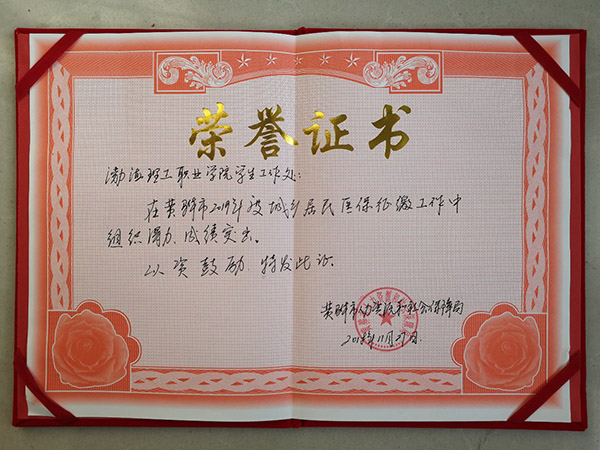 荣誉证书
渤海理工职业学院学生工作处:
在黄骅市2019年度城乡居民医保征缴工作中
组织得力、成绩突出。
以资鼓励,特发此证。
黄骅市人力资源和社会保障局
2018年11月27日.